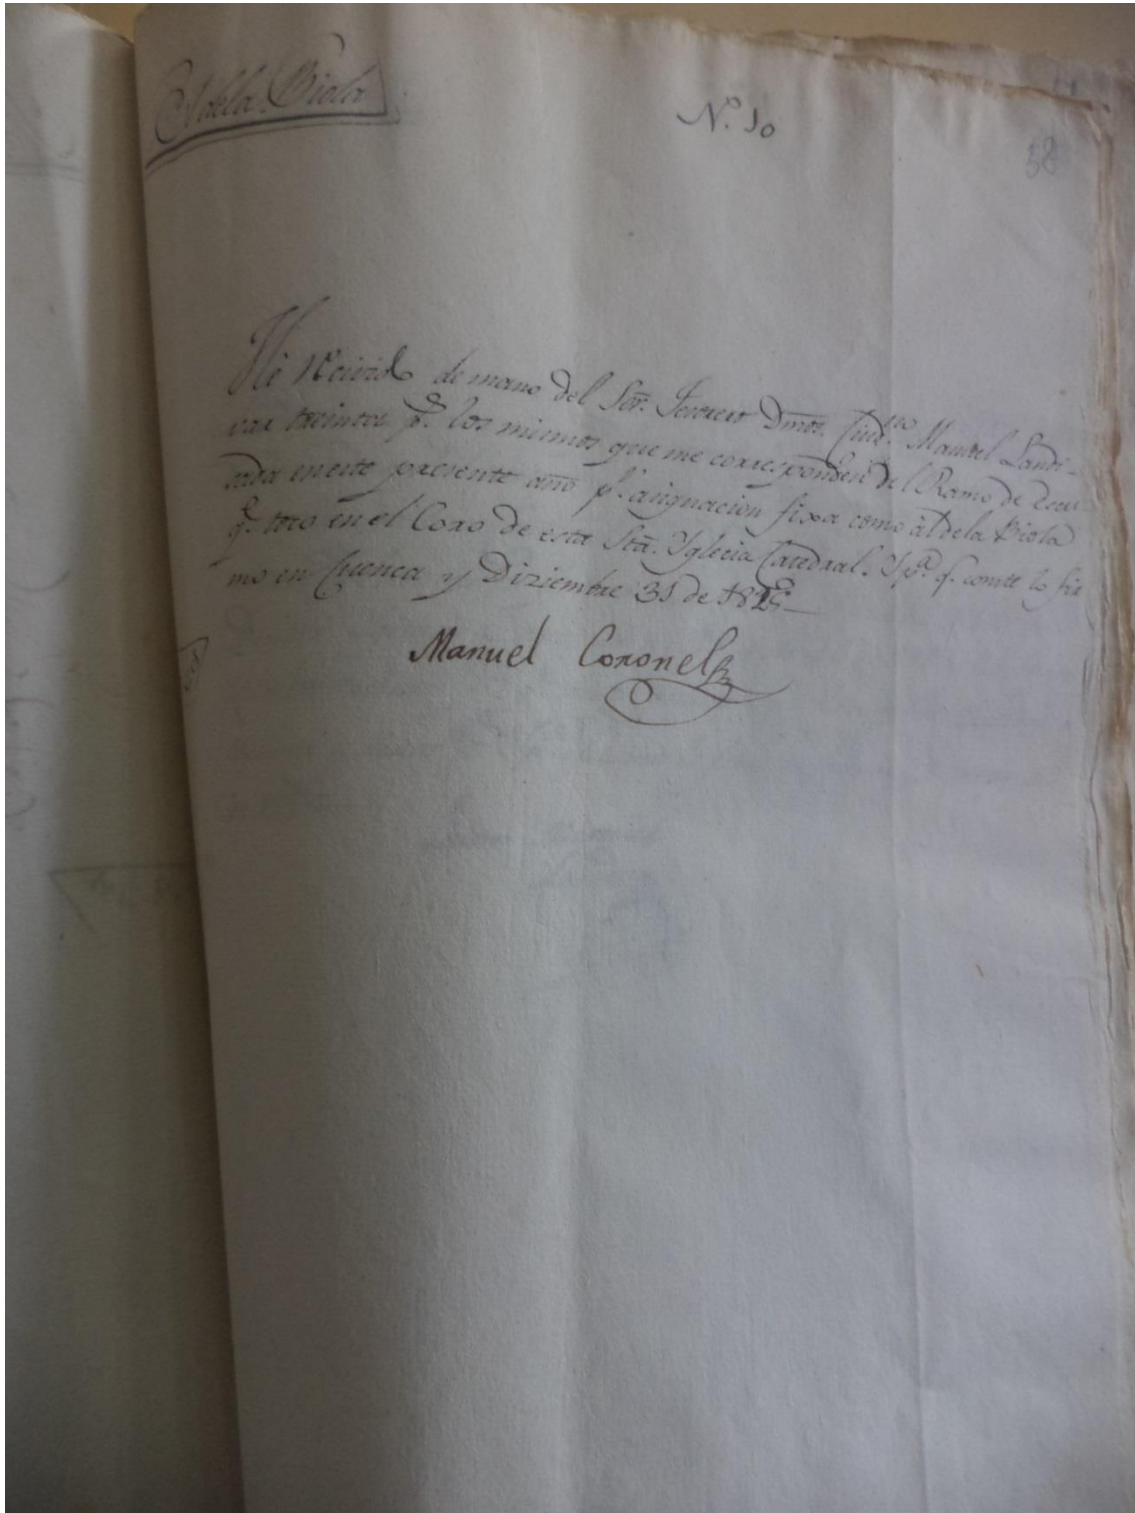 Al dela Biola
N.º 10
58
Hé Recivido de mano del Sor. Tesorero Dmos. Ciud.no Manuel Landi-
var treinta p.s los mismos que me corresponden del Ramo de Escu-
sada en este presente año p.r asignacion fixa como àl dela Biola
q.e toco en el Coro de esta Sta. Yglecia Catedral. Y p.a q.e conste lo fir
mo en Cuenca y Diziembre 31 de 1825
Manuel Coronel